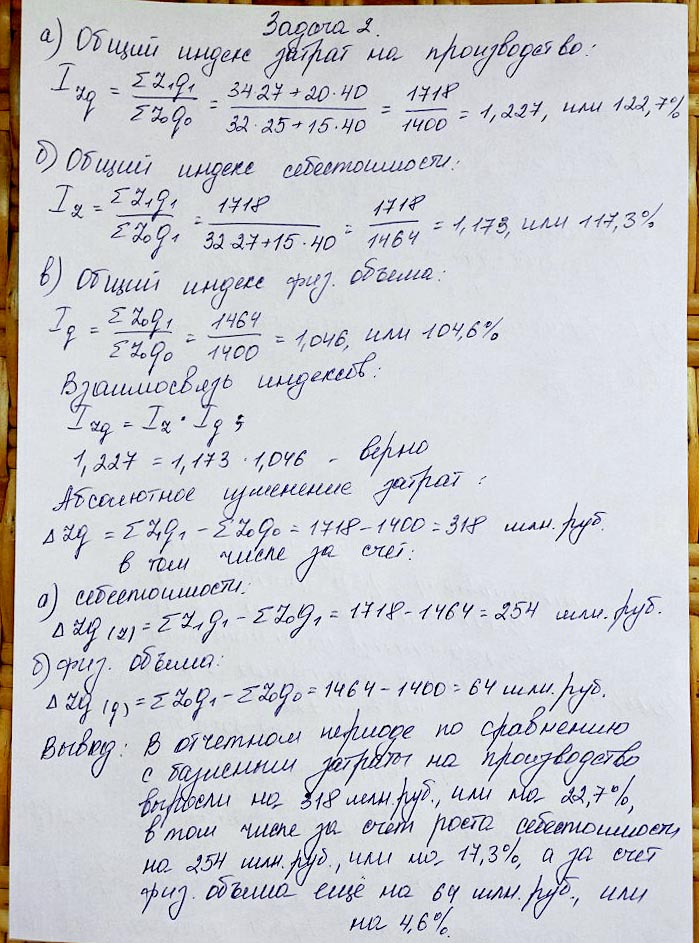 Задача 2.
а) Общий индекс затрат на производство:
I_zq = Σz₁q₁ / Σz₀q₀ = (34·27+20·40) / (32·25+15·40) = 1718 / 1400 = 1,227, или 122,7%
б) Общий индекс себестоимости:
I_z = Σz₁q₁ / Σz₀q₁ = 1718 / (32·27+15·40) = 1718 / 1464 = 1,173, или 117,3%
в) Общий индекс физ. объема:
I_q = Σz₀q₁ / Σz₀q₀ = 1464 / 1400 = 1,046, или 104,6%
Взаимосвязь индексов:
I_zq = I_z · I_q ;
1,227 = 1,173 · 1,046 - верно
Абсолютное изменение затрат:
Δzq = Σz₁q₁ - Σz₀q₀ = 1718 - 1400 = 318 млн. руб.
в том числе за счет:
а) себестоимости:
Δzq(z) = Σz₁q₁ - Σz₀q₁ = 1718 - 1464 = 254 млн. руб.
б) физ. объема:
Δzq(q) = Σz₀q₁ - Σz₀q₀ = 1464 - 1400 = 64 млн. руб.
Вывод: В отчетном периоде по сравнению
с базисным затраты на производство
выросли на 318 млн. руб., или на 22,7%,
в том числе за счет роста себестоимости
на 254 млн. руб., или на 17,3%, а за счет
физ. объема ещё на 64 млн. руб., или
на 4,6%.